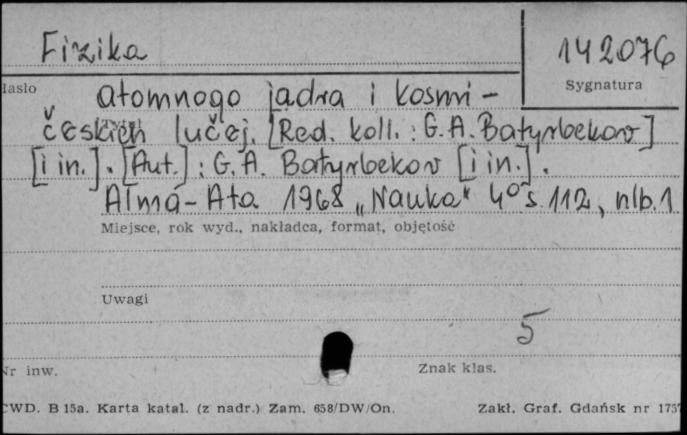 Fizika
142076
Hasło
Sygnatura
atomnogo jadra i kosmi-
českich lučej. [Red. koll.: G.A. Batyrbekov]
[i in.]. [Aut.]: G.A. Batyrbekov [i in.].
Alma-Ata 1968 „Nauka" 4° s. 112, nlb. 1
Miejsce, rok wyd., nakładca, format, objętość
Uwagi
5
Nr inw.
Znak klas.
CWD. B 15a. Karta katal. (z nadr.) Zam. 658/DW/On.
Zakł. Graf. Gdańsk nr 1757